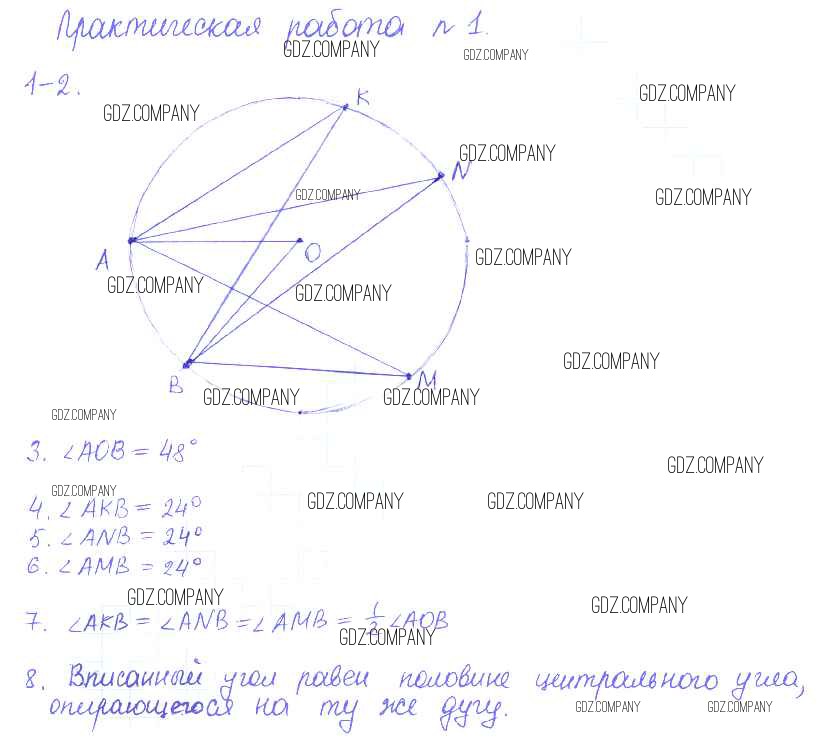 Практическая работа № 1.
GDZ.COMPANY GDZ.COMPANY
1-2.
K
GDZ.COMPANY
GDZ.COMPANY
GDZ.COMPANY
N
GDZ.COMPANY
GDZ.COMPANY
A
O
GDZ.COMPANY
GDZ.COMPANY
GDZ.COMPANY
GDZ.COMPANY
B
M
GDZ.COMPANY GDZ.COMPANY
GDZ.COMPANY
3. ∠AOB = 48°
GDZ.COMPANY
GDZ.COMPANY
4. ∠AKB = 24°
GDZ.COMPANY GDZ.COMPANY
5. ∠ANB = 24°
6. ∠AMB = 24°
GDZ.COMPANY
GDZ.COMPANY
7. ∠AKB = ∠ANB = ∠AMB = 1/2 ∠AOB
GDZ.COMPANY
8. Вписанный угол равен половине центрального угла,
опирающегося на ту же дугу.
GDZ.COMPANY GDZ.COMPANY